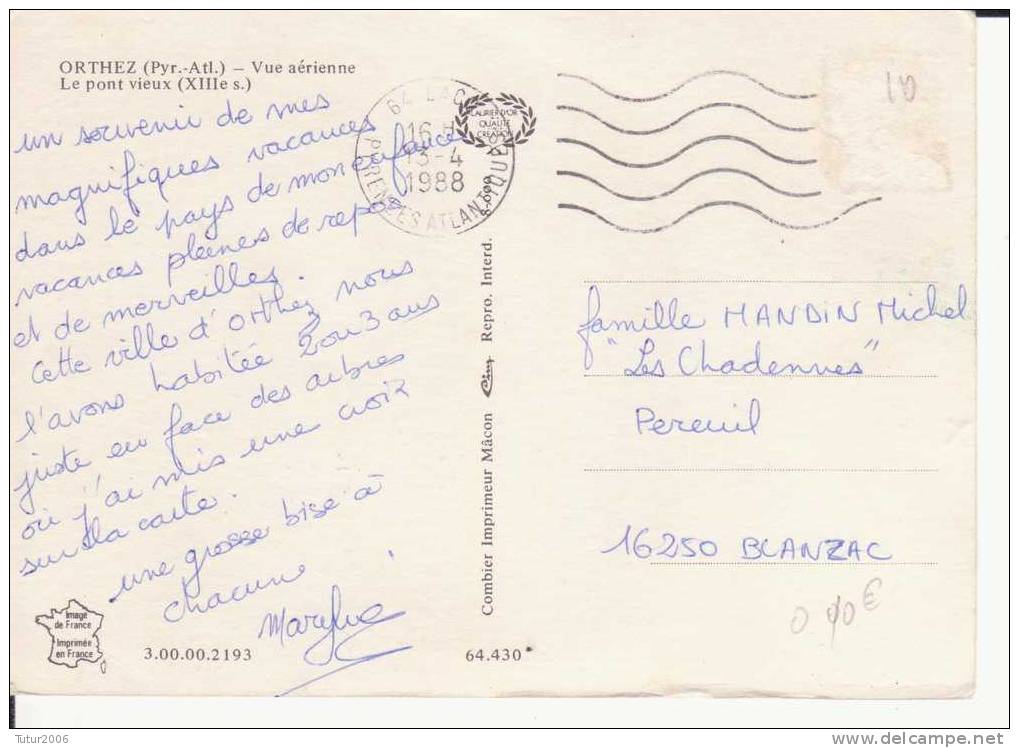 ORTHEZ (Pyr.-Atl.) – Vue aérienne
Le pont vieux (XIIIe s.)
un souvenir de mes
magnifiques vacances
dans le pays de mon enfance
vacances pleines de repos
et de merveilles.
Cette ville d'Orthez nous
l'avons habitée 2 ou 3 ans
juste en face des arbres
où j'ai mis une croix
sur la carte.
une grosse bise à
chacune
Image
de France
Imprimée
en France
3.00.00.2193
64.430
64
16 H
13-4
1988
PYRENEES ATLANTIQUES
LAURIER D'OR
QUALITÉ
CREATION
Combier Imprimeur Mâcon Cim Repro. Interd.
10
famille MANDIN Michel
"Les Chadennes"
Pereuil
16250 BLANZAC
Tutur2006
www.delcampe.net